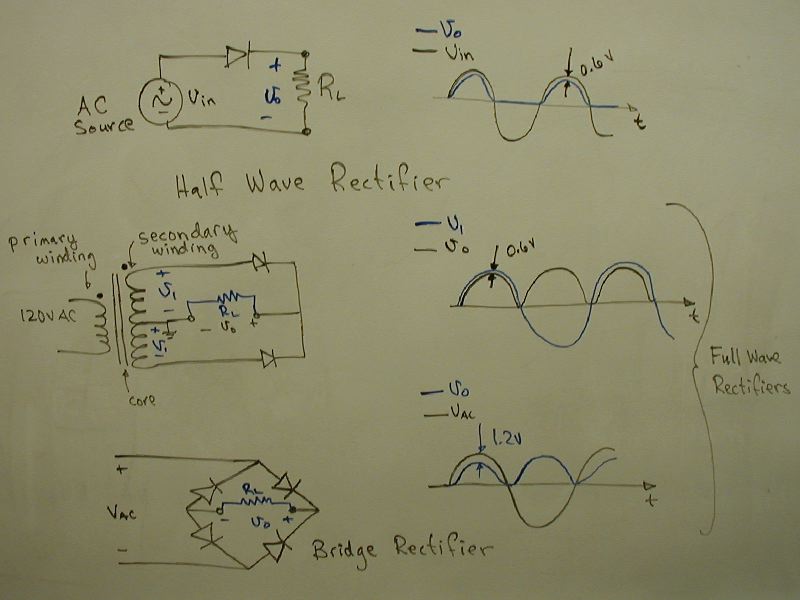 AC
Source
+
~
−
Vin
+
Vo
−
RL
Vo
Vin
0.6V
t
Half Wave Rectifier
primary
winding
secondary
winding
120VAC
+
V1
−
+
V1
−
RL
− Vo +
core
V1
Vo
0.6V
t
Full Wave
Rectifiers
Vo
VAC
1.2V
t
+
VAC
−
RL
− Vo +
Bridge Rectifier